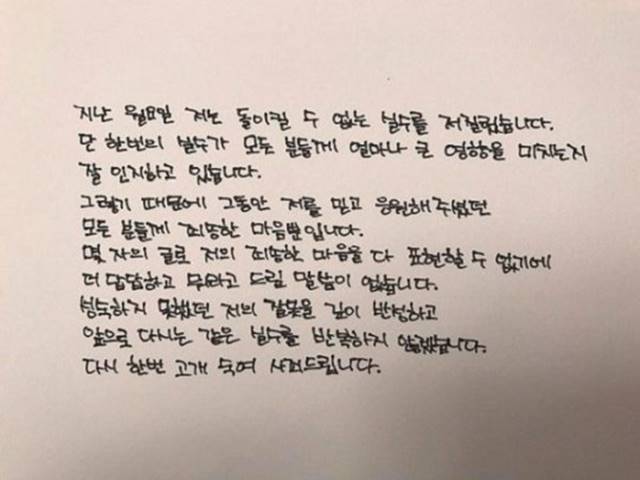 지난 월요일 저는 돌이킬 수 없는 실수를 저질렀습니다.
단 한번의 실수가 모든 분들께 얼마나 큰 영향을 미치는지
잘 인지하고 있습니다.
그렇기 때문에 그동안 저를 믿고 응원해주셨던
모든 분들께 죄송한 마음뿐입니다.
몇 자의 글로 저의 죄송한 마음을 다 표현할 수 없기에
더 답답하고 뭐라고 드릴 말씀이 없습니다.
성숙하지 못했던 저의 잘못을 깊이 반성하고
앞으로 다시는 같은 실수를 반복하지 않겠습니다.
다시 한번 고개 숙여 사과드립니다.